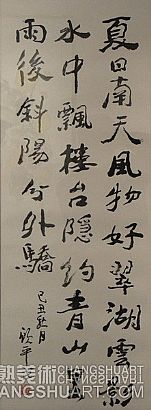 夏日南天風物好翠湖雲影
水中飄樓台隱約青山
雨後斜陽分外驕
己丑秋月
平
熟美術 CHANGSHUART